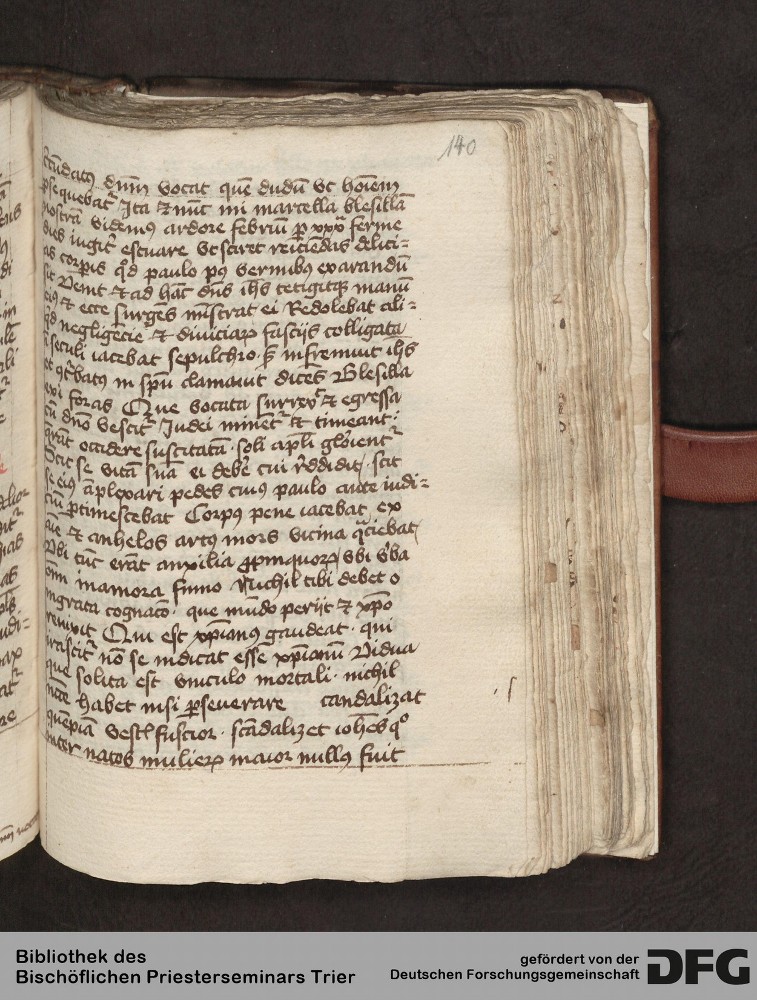 140
dnm̄ vocat quē dudū vt hoīem
psequebat᷑ Ita & nūt mi martella blesillā
nostrā videmꝯ ardore febriū ꝑ xxxᵃ ferme
dies iugit᷑ estuare vt sciret reiciēdas delici=
as corpis qd̄ paulo pꝯ vermibꝯ exarandū
sit Venit & ad hāc dn̄s ih̄s tetigitqꝫ manū
eiꝯ & ecce surgēs mīstrat ei Redolebat ali=
qd negligētie & diuiciaꝝ fasciis colligata
ī seculi iacebat sepulchro · sꝫ infremuit ih̄s
et ꝯt᷑batꝯ in spū clamauit dicēs Blesilla
exi foras Que vocata surrexit & egressa
cū dn̄o vescit᷑ Judei minent᷑ & timeant:
q̄rāt occidere suscitatā · soli apl̄i glorient᷑
Scit se vitā suā ei debē cui r̄ddidit / scit
se eiꝯ āplexari pedes cuiꝯ paulo ante iudi=
ciū ꝑtimescebat Corpꝯ pene iacebat ex
aīe & anhelos artꝯ mors vicina q̄ciebat /
Vbi tūc erāt auxilia ꝓpinquoꝝ vbi v̄ba
om̄i inaniora fumo Nichil tibi debet o
ingrata cognacō · que mūdo periit & xp̄o
reuixit Qui est xp̄ianꝯ gaudeat · qui
irascit᷑ nō se indicat essē xp̄ianū Vidua
que solita est vinculo mortali · nichil
nēce habet nisi ꝑseuerare candalizat
quēpiā vestis fuscior · scādalizet ioh̄es qᵒ
inter natos mulieꝝ maior nullꝯ fuit
s
Bibliothek des
Bischöflichen Priesterseminars Trier
gefördert von der
Deutschen Forschungsgemeinschaft
DFG